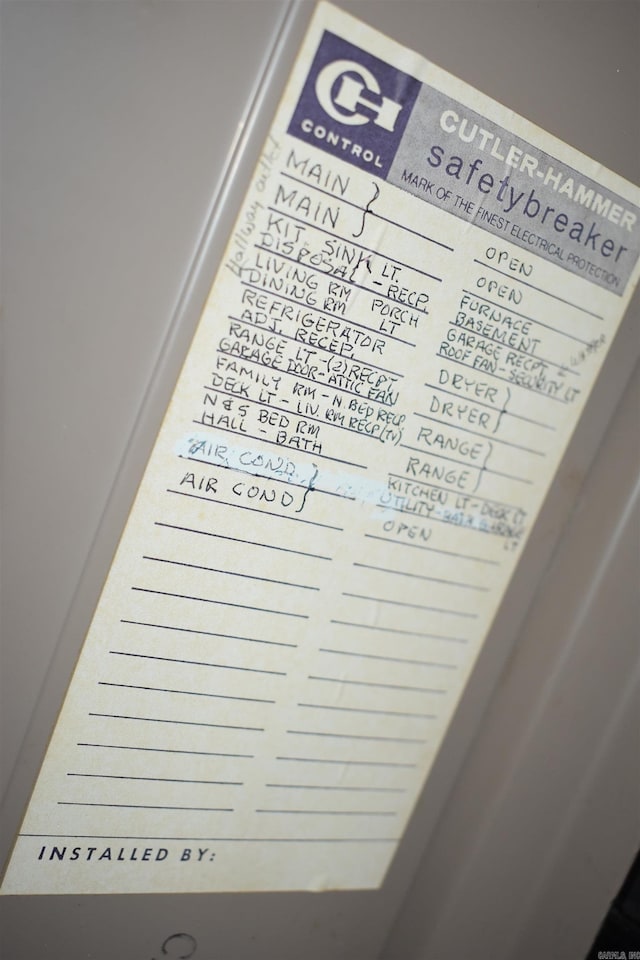 CH
CONTROL
CUTLER-HAMMER
safetybreaker
MARK OF THE FINEST ELECTRICAL PROTECTION
Hallway outlet
MAIN
MAIN
KIT. SINK LT.
DISPOSAL - RECP.
LIVING RM PORCH
DINING RM LT
REFRIGERATOR
ADJ. RECEP.
RANGE LT -(2) RECPT
GARAGE DOOR - ATTIC FAN
FAMILY RM - N BED RECP
DECK LT - LIV. RM RECP (TV)
N & S BED RM
HALL - BATH
AIR COND.
AIR COND
OPEN
OPEN
FURNACE
BASEMENT
GARAGE RECPT
ROOF FAN - SECURITY LT
DRYER
DRYER
RANGE
RANGE
KITCHEN LT - DECK LT
UTILITY - BATH & GARAGE
LT
OPEN
INSTALLED BY: